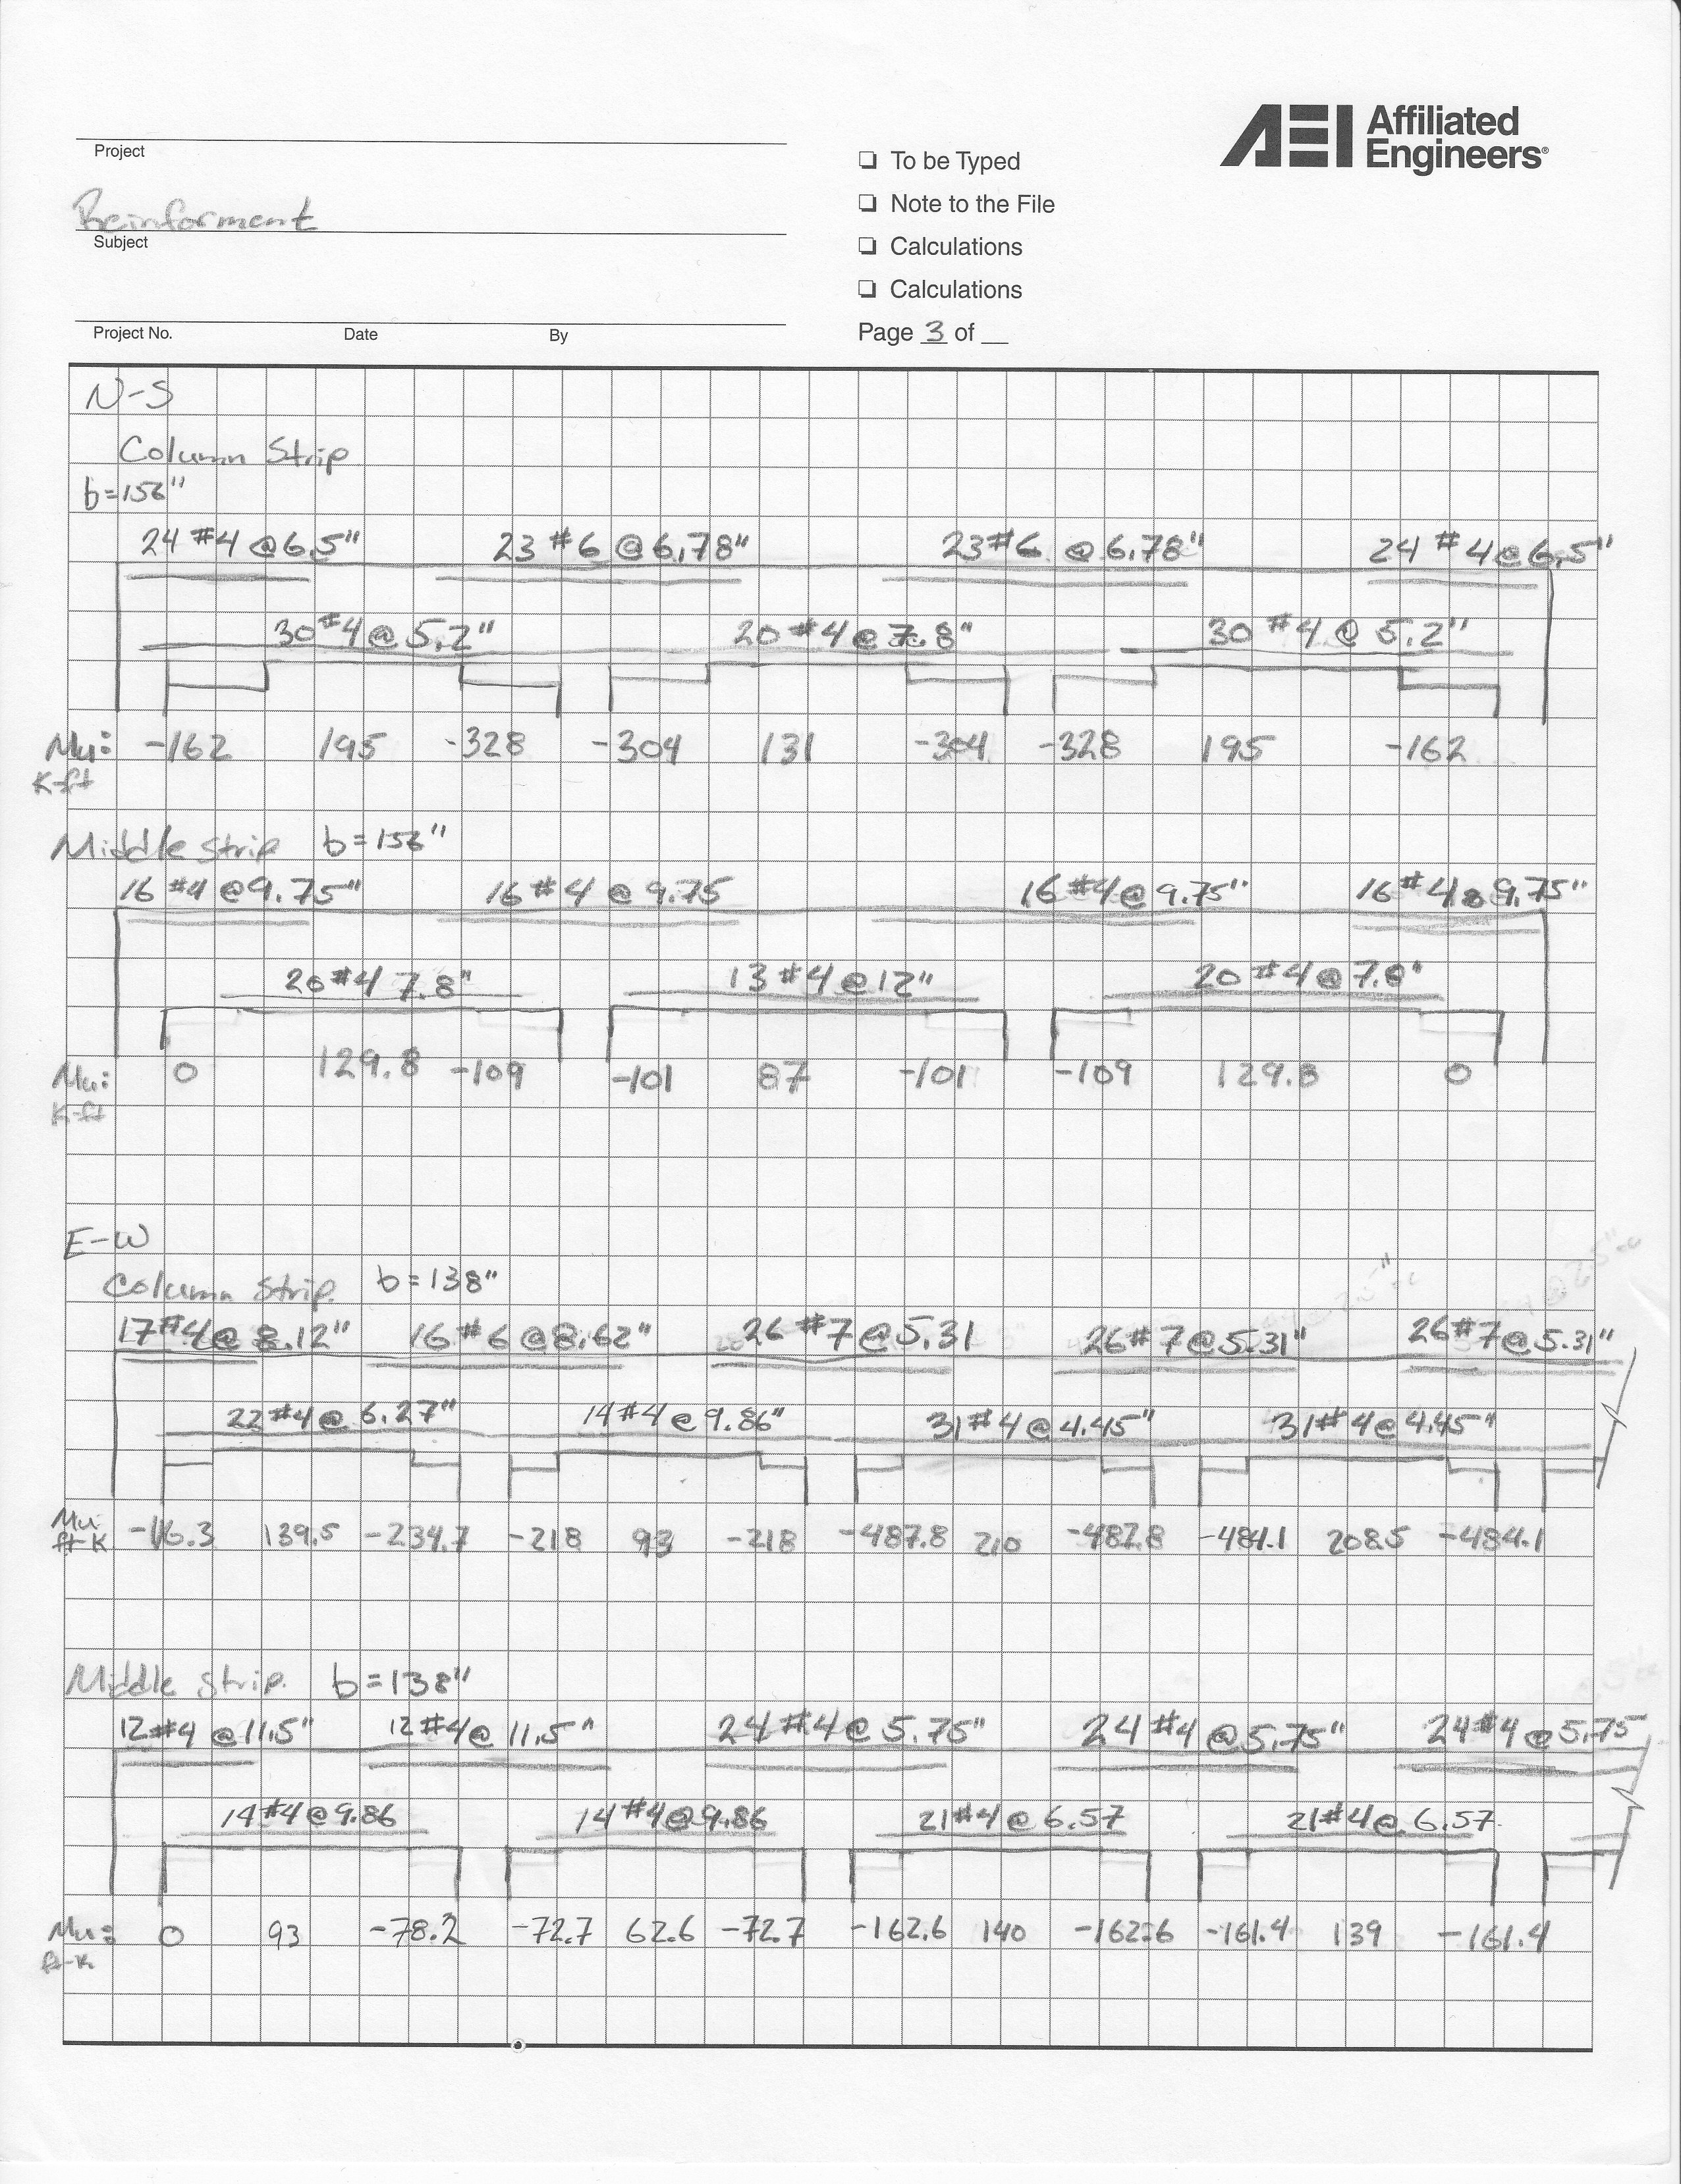 AEI Affiliated Engineers®
Project
Reinforment
Subject
Project No. Date By
❑ To be Typed
❑ Note to the File
❑ Calculations
❑ Calculations
Page 3 of __
N-S
Column Strip
b=156"
24 #4 @6.5" 23 #6 @ 6.78" 23#6 @ 6.78" 24 #4@6.5"
30#4@5.2" 20 #4@7.8" 30 #4@ 5.2"
Mu: -162 195 -328 -304 131 -304 -328 195 -162
K-ft
Middle strip b=156"
16 #4 @9.75" 16 #4 @ 9.75 16 #4@9.75" 16 #4@9.75"
20 #4 7.8" 13 #4@12" 20 #4@7.8"
Mu: 0 129.8 -109 -101 87 -101 -109 129.8 0
K-ft
E-W
Column Strip. b=138"
17#4@ 8.12" 16 #6 @8.62" 26 #7 @5.31 26#7@5.31" 26#7@5.31"
22 #4@ 6.27" 14#4@9.86" 31#4@4.45" 31#4@4.45"
Mu -116.3 139.5 -234.7 -218 93 -218 -487.8 210 -487.8 -484.1 208.5 -484.1
ft-K
Middle strip. b=138"
12#4 @11.5" 12#4@ 11.5" 24 #4@ 5.75" 24 #4 @5.75" 24#4@5.75
14#4@9.86 14 #4@9.86 21#4@6.57 21#4@ 6.57
Mu: 0 93 -78.2 -72.7 62.6 -72.7 -162.6 140 -162.6 -161.4 139 -161.4
ft-K